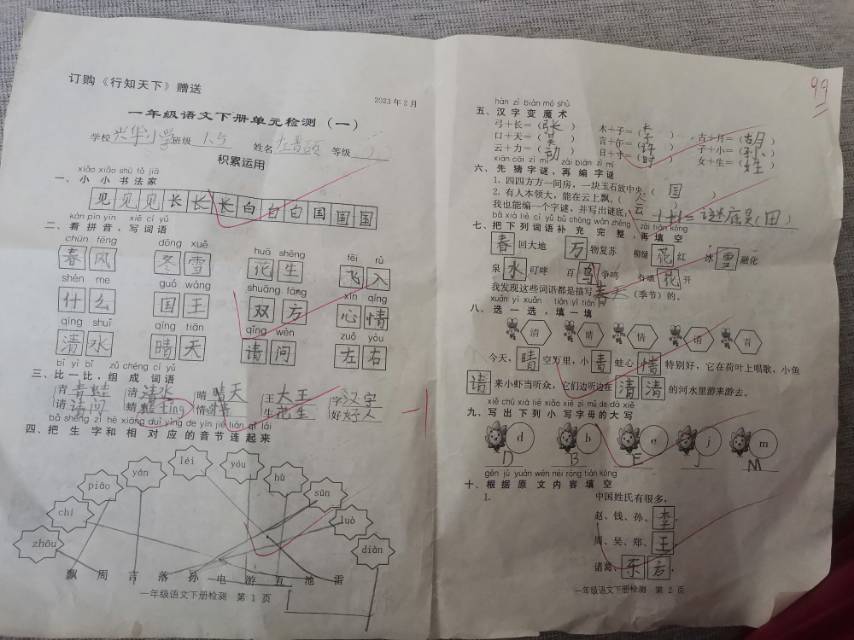 订购《行知天下》赠送
2023年2月
一年级语文下册单元检测（一）
学校 兴华小学 班级 1.5 姓名 等级
积累运用
xiǎo xiǎo shū fǎ jiā
一、小小书法家
见见见长长长白白白国国国
kàn pīn yīn xiě cí yǔ
二、看拼音，写词语
chūn fēng dōng xuě huā shēng fēi rù
春风 冬雪 花生 飞入
shén me guó wáng shuāng fāng xīn qíng
什么 国王 双方 心情
qīng shuǐ qíng tiān qǐng wèn zuǒ yòu
清水 晴天 请问 左右
bǐ yì bǐ zǔ chéng cí yǔ
三、比一比，组成词语
青 青蛙 清 清水 晴 晴天 王 大王 字 汉字
请 请问 蜻 蜻ting 情 生 花生 好 好人
bǎ shēng zì hé xiāng duì yìng de yīn jié lián qǐ lái
四、把生字和相对应的音节连起来
zhōu chí piāo yán léi yóu hù sūn luò diàn
飘 周 言 落 孙 电 游 互 池 雷
一年级语文下册检测 第1页
99
hàn zì biàn mó shù
五、汉字变魔术
弓＋长＝（张） 木＋子＝（李） 古＋月＝（胡）
口＋天＝（吴） 言＋午＝（许） 子＋小＝（孙）
云＋力＝（动） 日＋寸＝（时） 女＋生＝（姓）
xiān cāi zì mí zài biān zì mí
六、先猜字谜，再编字谜
1. 四四方方一间房，一块玉石放中央。（国）
2. 有人本领大，能在云上飘。（会）
我也能编一个字谜，并写出谜底：
bǎ xià liè cí yǔ bǔ chōng wán zhěng zài tián kòng
七、把下列词语补充完整，再填空
春回大地 万物复苏 柳绿花红 冰雪融化
泉水叮咚 百鸟争鸣 百花开
我发现这些词语都是描写春天（季节）的。
xuǎn yì xuǎn tián yì tián
八、选一选，填一填
清 睛 情 请 青
今天，晴空万里，小青蛙心情特别好，它在荷叶上唱歌，小鱼
请来小虾当听众，它们边听边在清清的河水里游来游去。
xiě chū xià liè xiǎo xiě zì mǔ de dà xiě
九、写出下列小写字母的大写
d b e j m
D B E J M
gēn jù yuán wén nèi róng tián kòng
十、根据原文内容填空
1. 中国姓氏有很多，
赵、钱、孙、李
周、吴、郑、王
诸葛、东方，
一年级语文下册检测 第2页